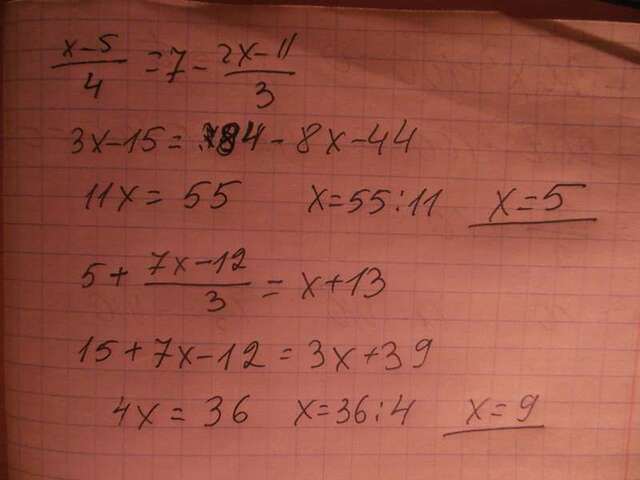 x-5/4 = 7 - 2x-11/3
3x-15 = 84 - 8x-44
11x = 55 x=55:11 x=5
5 + 7x-12/3 = x+13
15+7x-12 = 3x+39
4x = 36 x=36:4 x=9